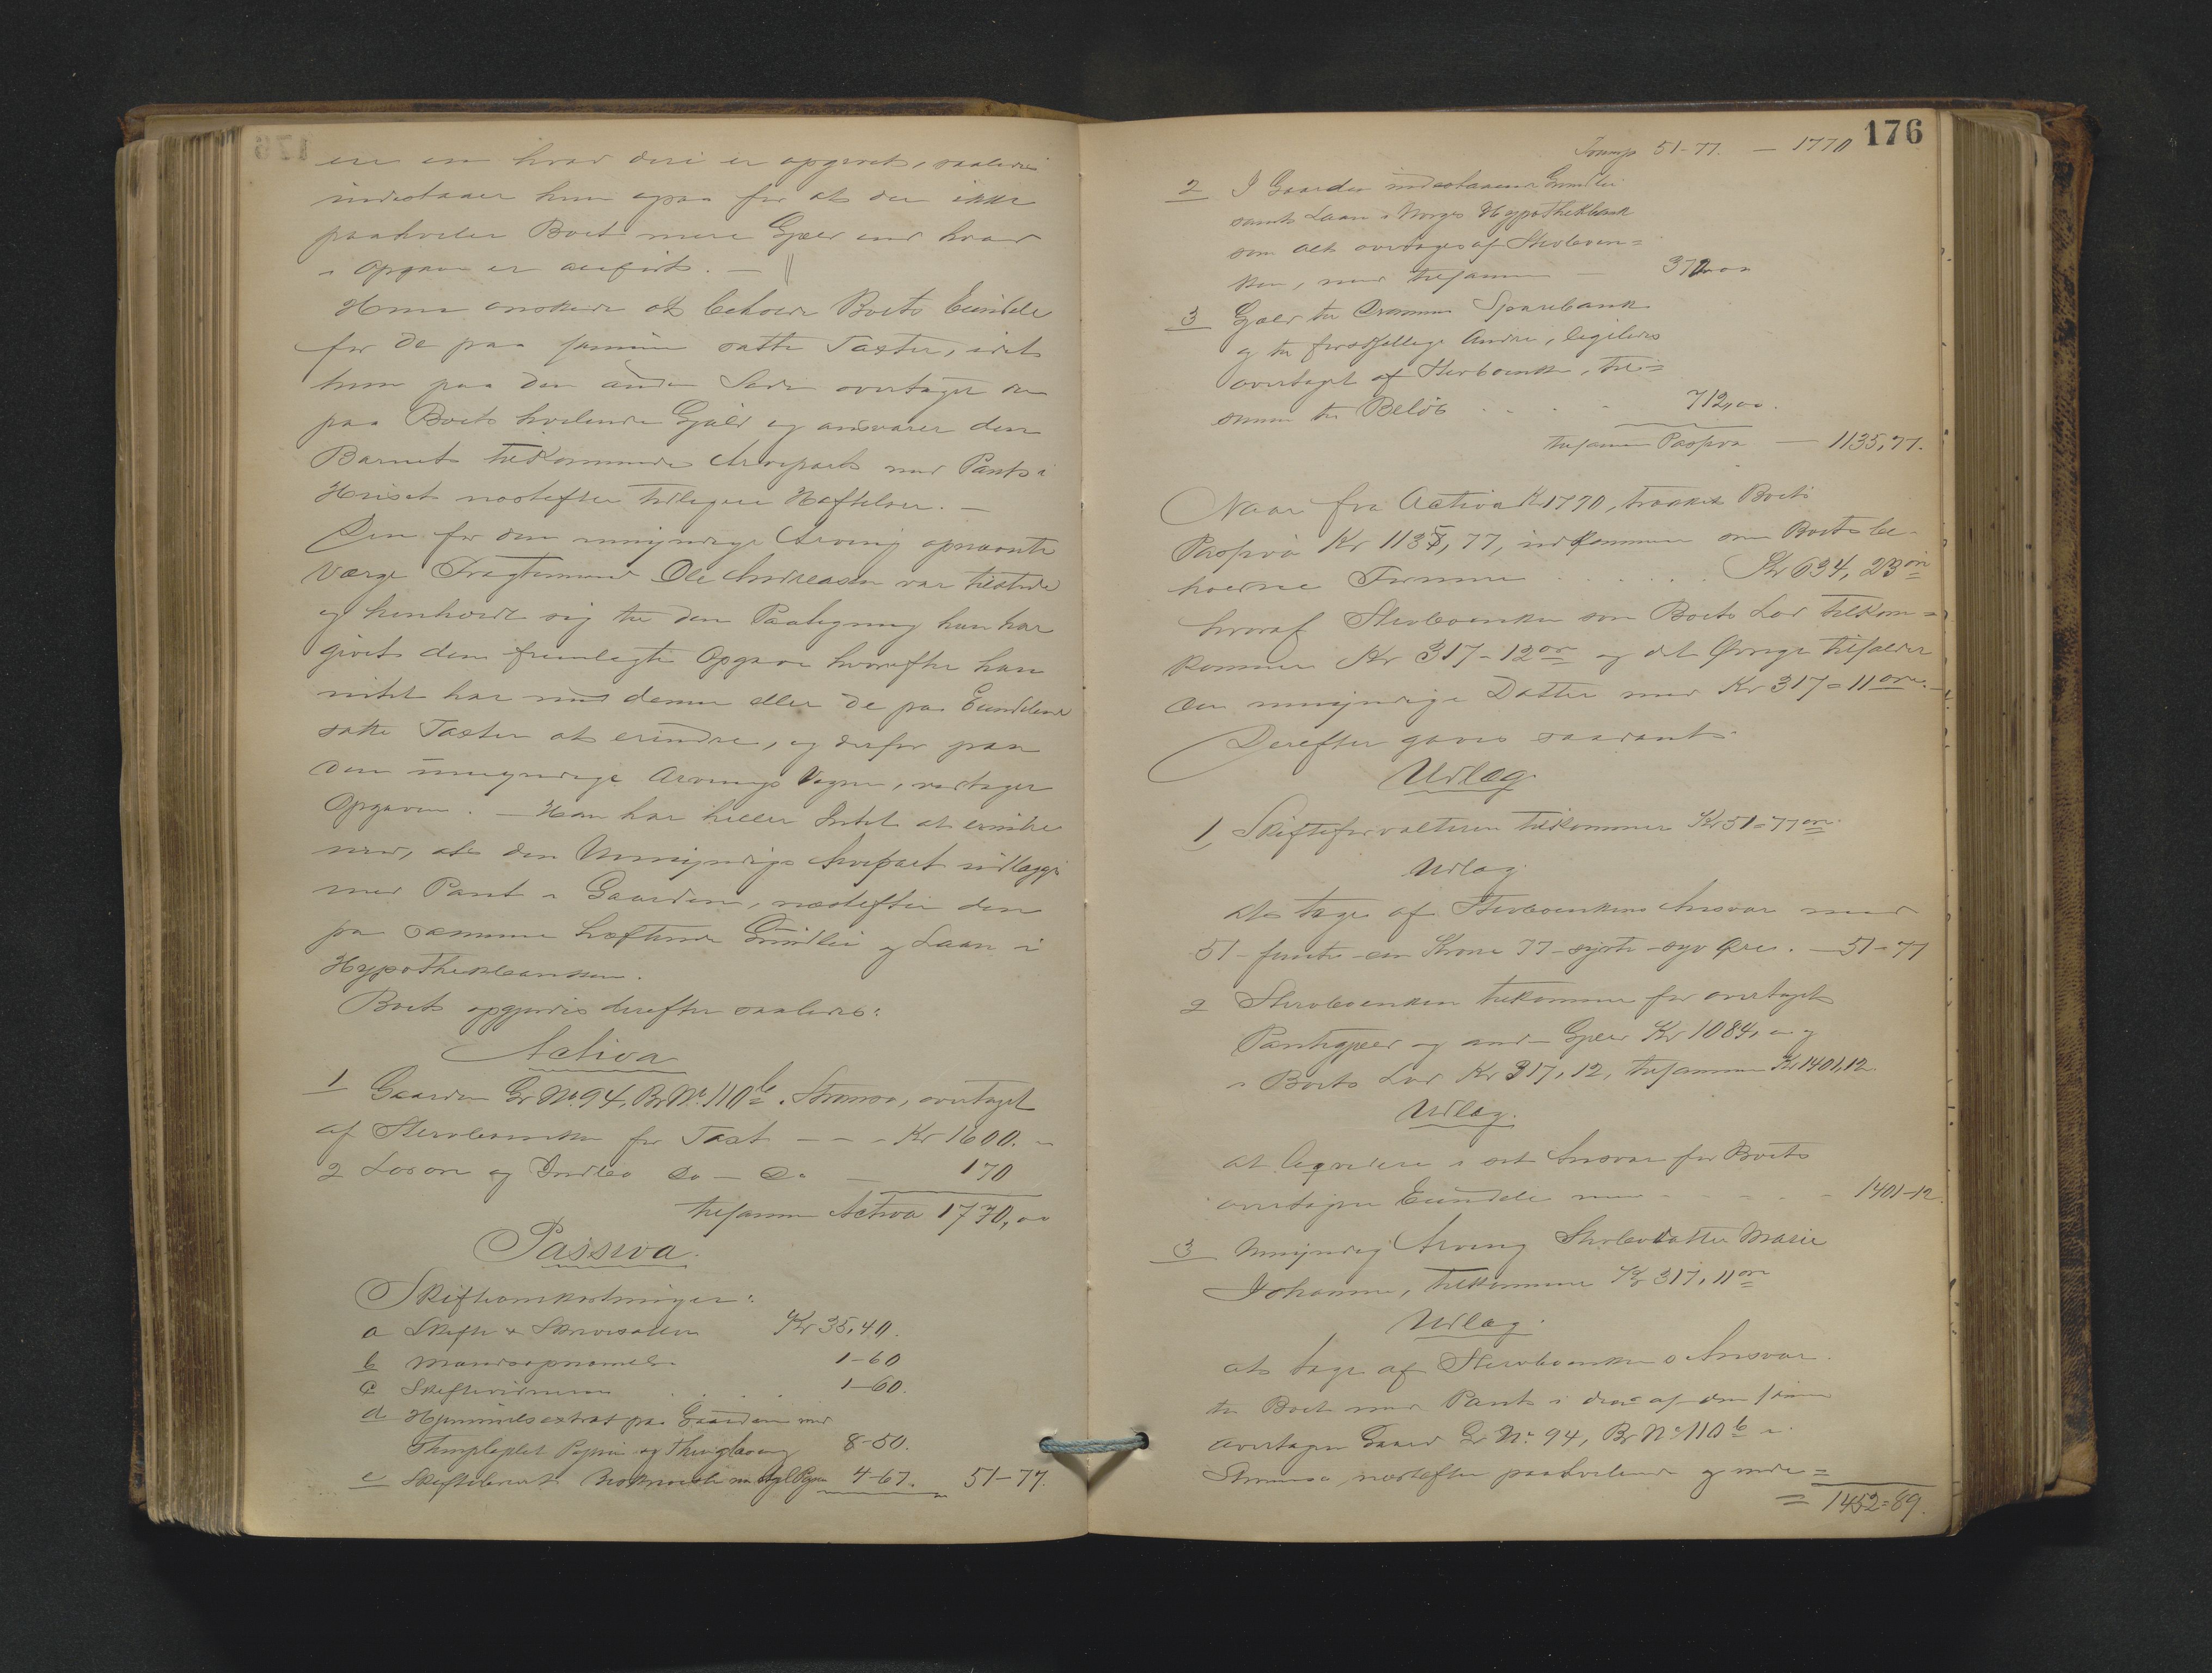 en om hvad deri er opgivet, saaledes
indestaaer hun ogsaa for at der ikke
paahviler Boet mere Gjæld end hvad
i Opgaven er anført. —
Hun ønskede at beholde Boets Eiendele
for de paa samme satte Taxter, idet
hun paa den anden Side overtager den
paa Boet hvilende Gjæld og ansvarer den
Barnet tilkommende Arvepart med Pant i
Huset næstefter tidligere Heftelser. —
Den for den umyndige Arving opnævnte
Værge Fragtemand Ole Andreasen var tilstede
og henholdt sig til den Paategning han har
givet den fremlagte Opgave hvorefter han
intet har mod denne eller de paa Eiendelene
satte Taxter at erindre, og derfor paa
den umyndige Arvings Vegne, vedtager
Opgaven. — Han har heller Intet at erindre
mod, at den Umyndiges Arvepart udlægges
med Pant i Gaarden, næstefter den
paa samme heftende Grundleie og Laan i
Hypothekbanken.
Boet opgjordes derefter saaledes:
Activa
1 Gaarden Gr No. 94, Br No. 110 b i Strømsø, overtaget
af Sterboenken for Taxt - - - Kr 1600. -
2 Løsøre og Indbo Do — Do — 170
tilsammen Activa 1770,00
Passiva.
Skifteomkostninger:
a Skifte & Skriversalær Kr 35,40.
b Mandsopnævnelse 1-60
c Skiftevidnerne . . . . 1-60.
d Hjemmelsextrakt paa Gaarden med
Stemplet Papir og Thinglæsning 8-50.
e Skiftebrevets Beskrivelse med stpl Papir 4-67. 51-77.
176
Transp 51-77. — 1770
2 I Gaarden indestaaende Grundleie
samt Laan i Norges Hypothekbank
som alt overtages af Sterboen=
ken, med tilsammen — 372,00
3 Gjæld til Drammens Sparebank
og til forskjellige Andre, ligeledes
overtaget af Sterboenken, til=
sammen til Beløb . . . . 712,00.
tilsammen Passiva — 1135,77.
Naar fra Activa Kr 1770, trækkes Boets
Passiva Kr 1135,77, udkommer som Boets be-
holdne Formue . . . . . Kr 634, 23 øre
hvoraf Sterboenken som Boets Lod tilkom=
kommer Kr 317-12 øre og det Øvrige tilfalder
den umyndige Datter med Kr 317=11 øre. —
Derefter gaves saadant
Udlæg.
1, Skifteforvalteren tilkommer Kr 51=77 øre.
Udlæg.
at tage af Sterboenkens Ansvar med
51 - femti - en Krone 77 - sytti - syv Øre. — 51=77
2 Sterboenken tilkommer for overtaget
Pantegjæld og anden Gjæld Kr 1084, - og
i Boets Lod Kr 317,12, tilsammen Kr 1401,12.
Udlæg.
at liqvidere i sit Ansvar for Boets
overtagne Eiendele med - - - - - - 1401-12.
3 Umyndig Arving Sterbodatter Marie
Johanne, tilkommer Kr 317, 11 øre
Udlæg.
at tage af Sterboenkens Ansvar
til Boet med Pant i den af den samme
overtagne Gaard Gr No. 94, Br No 110 b i
Strømsø, næstefter paahvilende og inde=
= 1452=89.